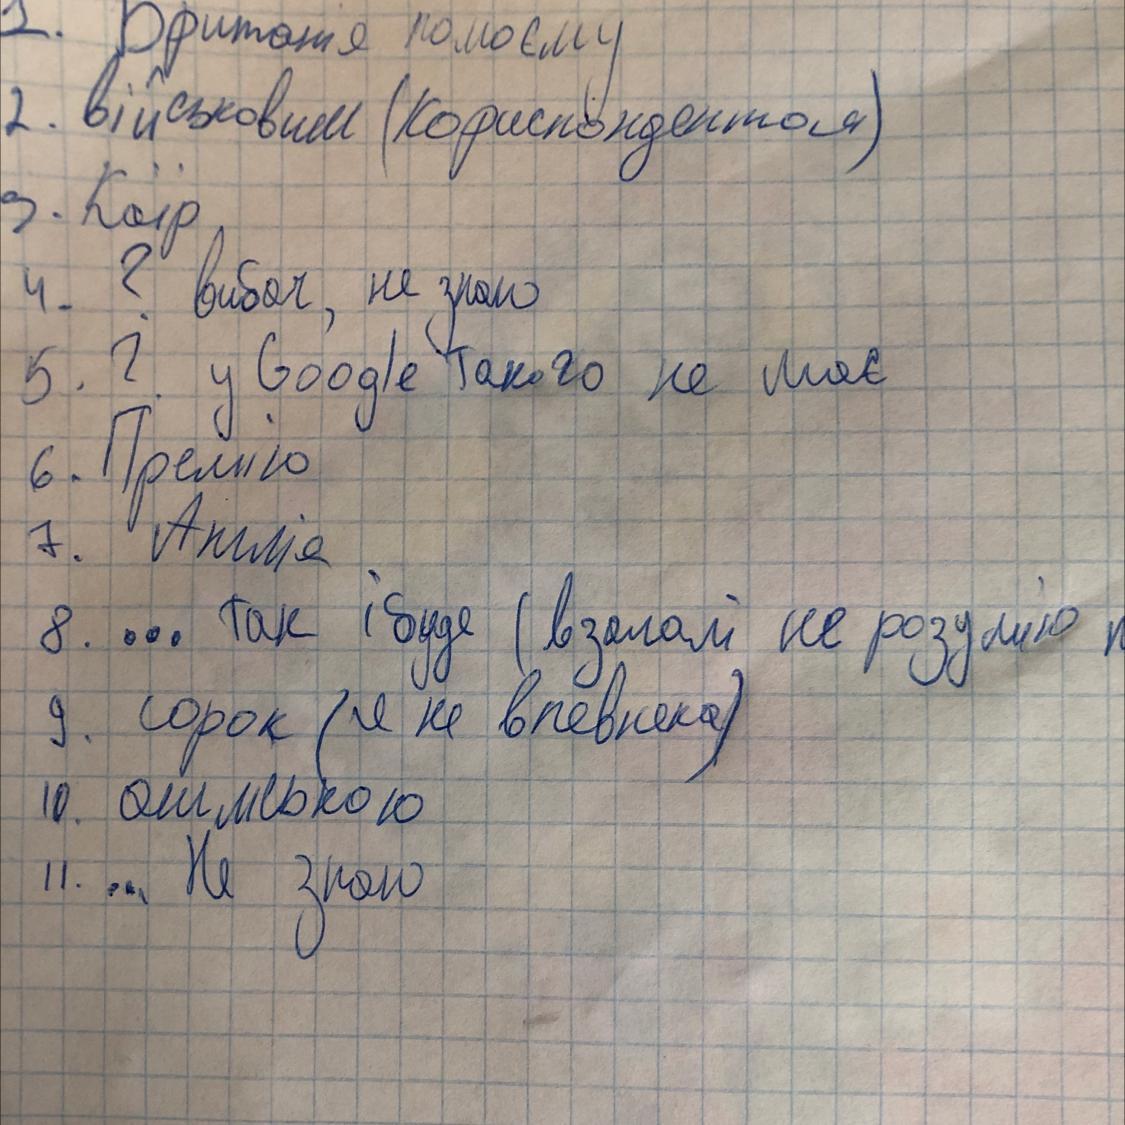 1. Британія помоєму
2. військовим (кориспондентом)
3. Каїр
4. ? вибач, не знаю
5. ? у Google такого не має
6. Премію
7. Англія
8. ... так і буде (взагалі не розумію
9. сорок (я не впевнена)
10. англіською
11. ... Не знаю